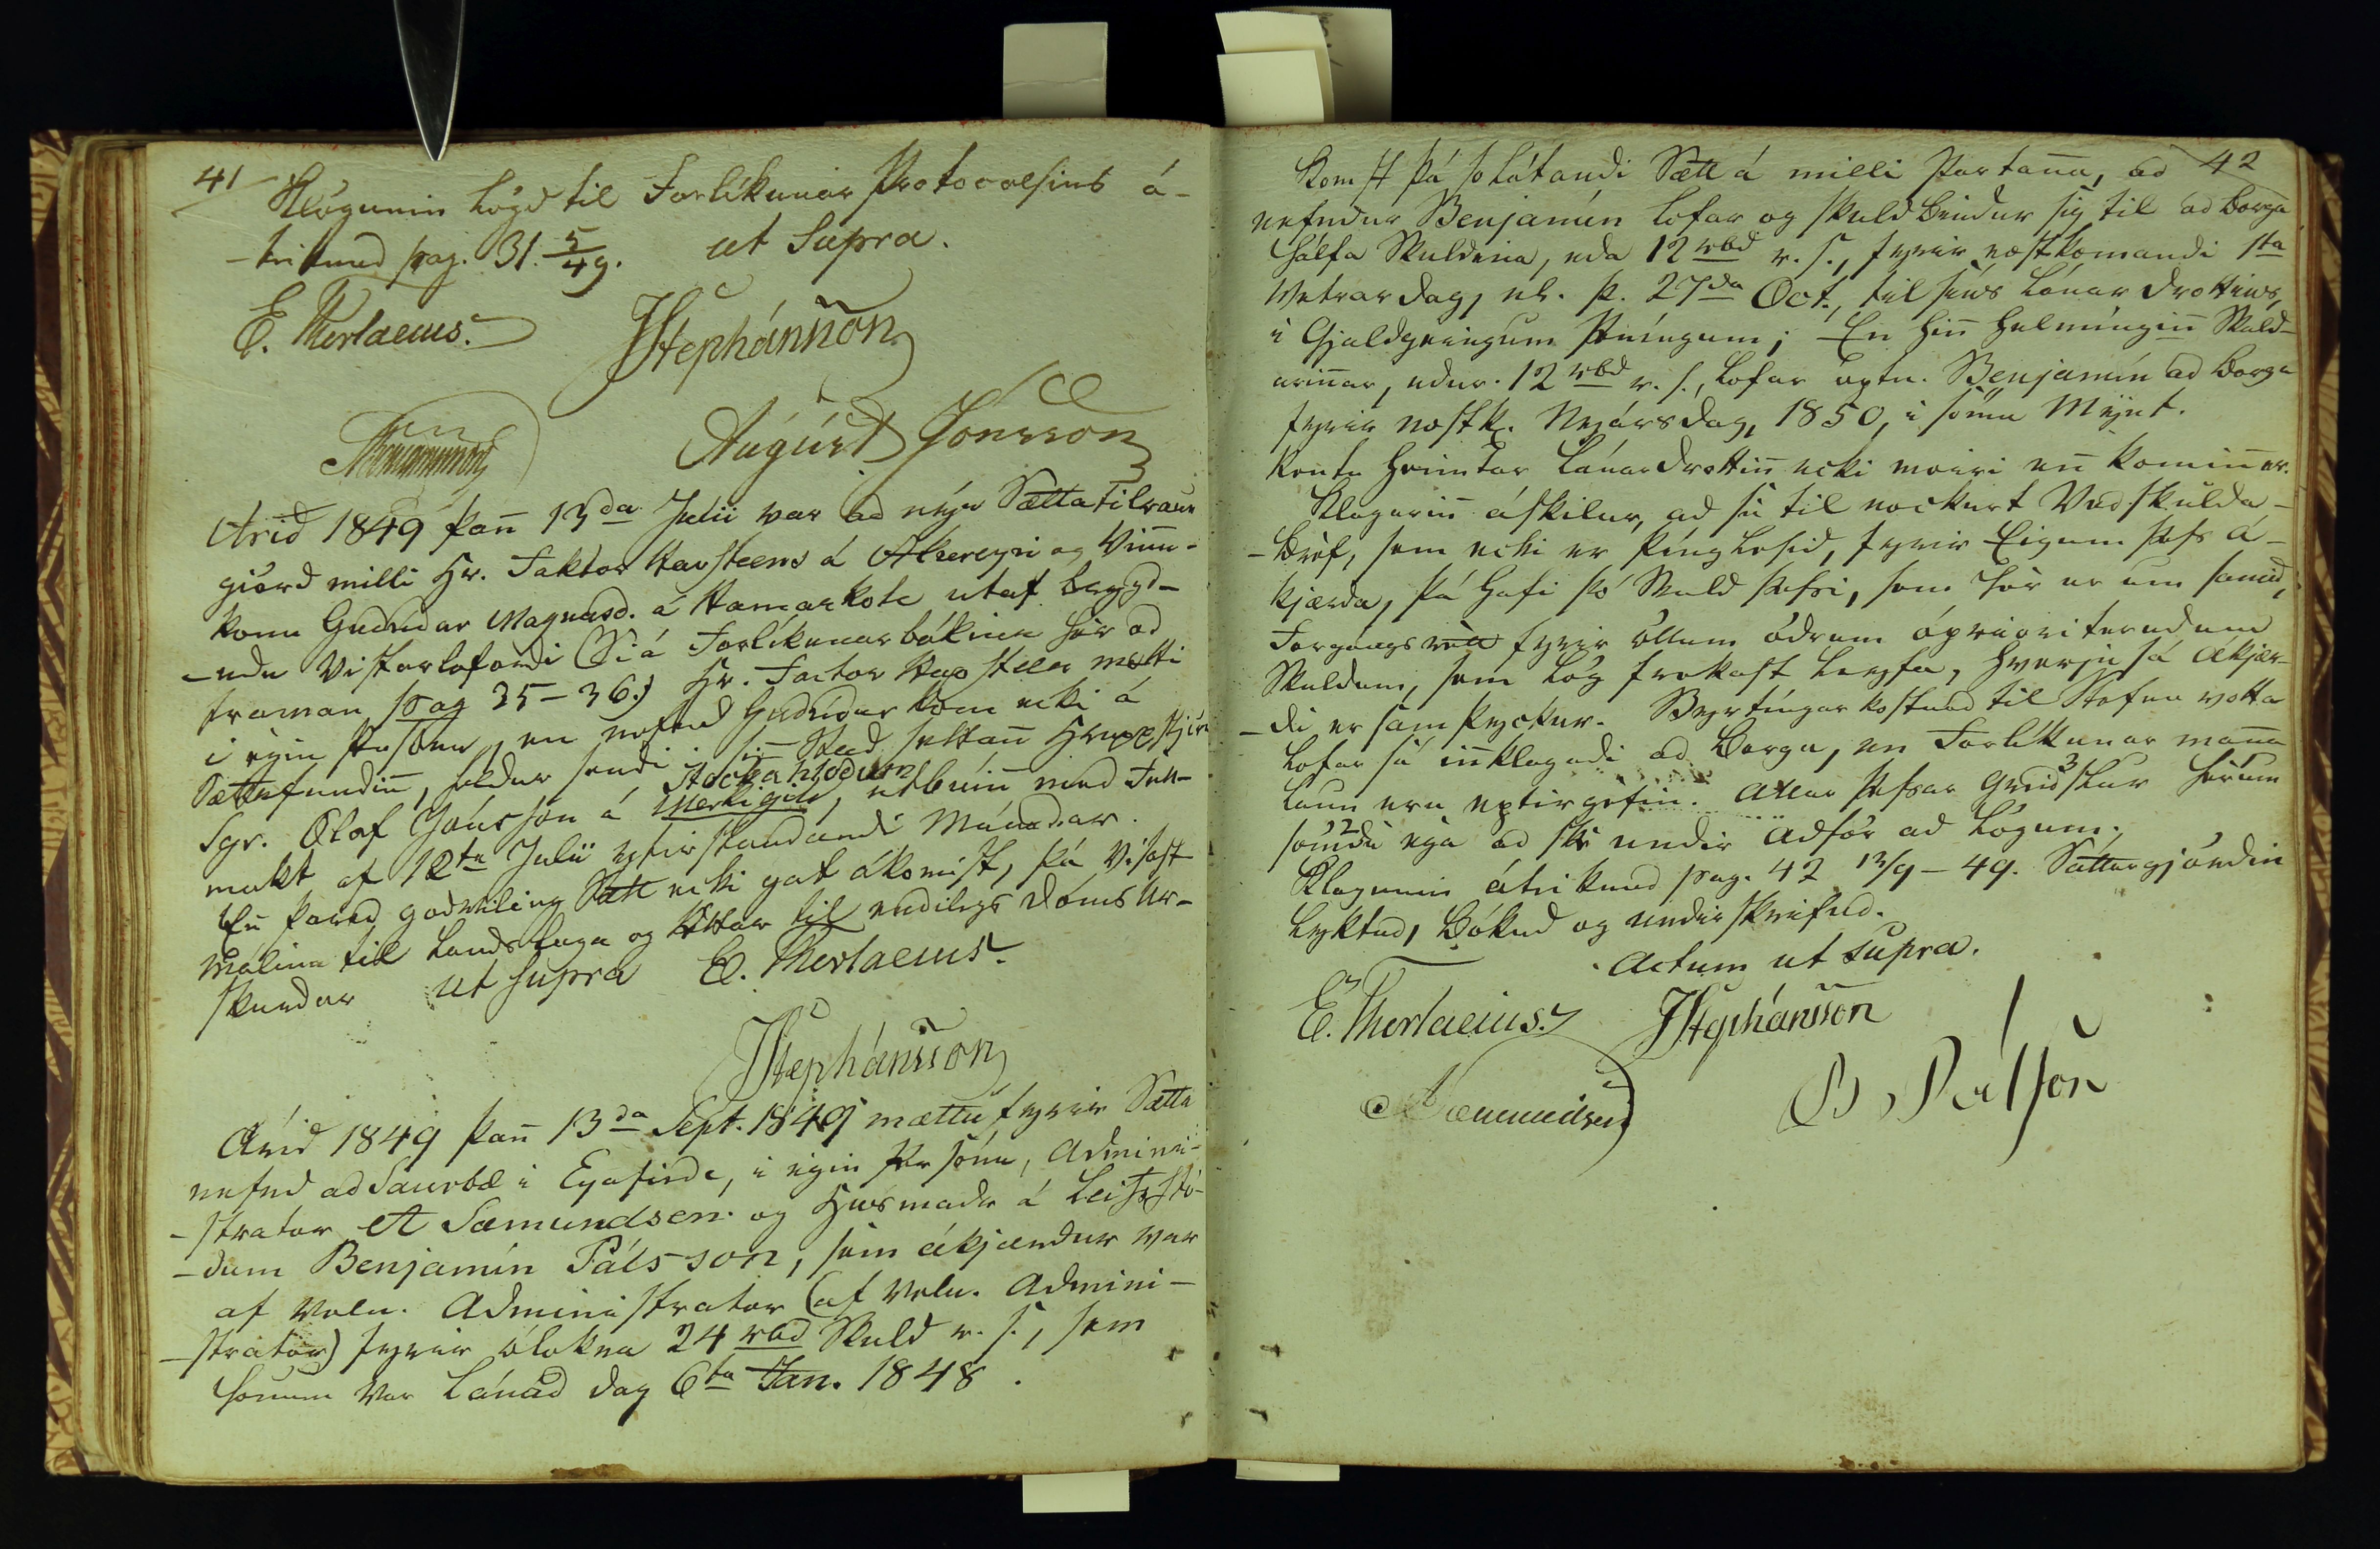 41
Klögunin lögd til Forlíkunar Protocolsins á-
-teiknud pag. 31. 5/49. ut Supra.
E. Thorlacius. JStephánsson
August Jónsson
Arid 1849 þan̄ 13da Julii var ad nýu Sættatilraun
giörd milli Hr. Faktor Havsteens á Akureyri og Vinnu-
konu Gudrúdar Magnusd. á Hamarkoti utaf brygd-
-udu Vistarlofordi (Siá Forlíkunarbókina hér ad
framan pag 35-36.) Hr. Factor Havsteen mætti
i egin Persónu, en nefnd Gudrídur kom ecki á
Sættafundin̄, heldur sendi i sin̄ Stad settan̄ Hreppstjóra
Stockahlödum
Sgr. Olaf Jónsson á Merkigili, utbúin̄ med Full-
makt af 12ta Julii yfirstandandi Mánadar.
En̄ þared godviliug Sætt ecki gat ákomist, þá Vísast
Málinu til Landslaga og Réttar til endilegs Dóms Ur-
skurdar ut supra E. Thorlacius.
JStephánsson
Árid 1849 þan̄ 13da Sept. 1849 mættu fyrir Sætta
nefnd ad Saurbæ i Eyafirde, i egin Persónu, Admini-
-strator A Sæmundsen og Husmadr á Leifsstö-
-dum Benjamín Pálsson, sem ákjærdur var
af Veln. Administrator (af Veln. Admini-
-strator) fyrir ólokna 24 rbd Skuld r. s., sem
hönum var Lánad dag 6ta Jan. 1848.
42
Komst þá so látandi Sætt á milli Partan̄a, ad
nefndur Benjamín lofar og skuldbindur sig til ad borga
hálfa Skuldina, eda 12 rbd r. s., fyrir næstkomandi 1sta
Vetrardag, nl. þ. 27da Oct., til síns Lánardrottins,
i Gjaldgeingum Peníngum; En hin̄ helmíngin̄ Skuld-
arin̄ar, edur 12 rbd r. s., lofar optn. Benjamín ad borga
fyrir næstk. Nyársdag, 1850, i sömu Mynt.
Rentu heimtar Lánardrottin̄ ecki meiri en̄ komin̄ er.
Klagarin̄ áskilur, ad sé til nockurt Vedskulda-
-bréf, sem ecki er þínglesid, fyrir Eigum þess á-
kjærda, þá hafi þó Skuld þessi, sem hér er um samid,
Forgángsrétt fyrir öllum ödrum óprioriterudum
Skuldum, sem Lög frekast leyfa, hverju sá ákjær-
-di er samþyckur. Byrtíngarkostnad til Stefnu votta
Lofar sá in̄klagadi ad borga, en Forlíkunar man̄a
Laun eru eptirgefin. Allar þessar Greidslur hérum
sömdu ega ad ske undir Adför ad Lögum.
Klagunin áteiknud pag. 42 13/9-49. Sættargjördin
Lyktud, bókud og undirskrifud.
Actum ut supra.
E. Thorlacius. JStephánsson
ASæmundsen B Pálsson